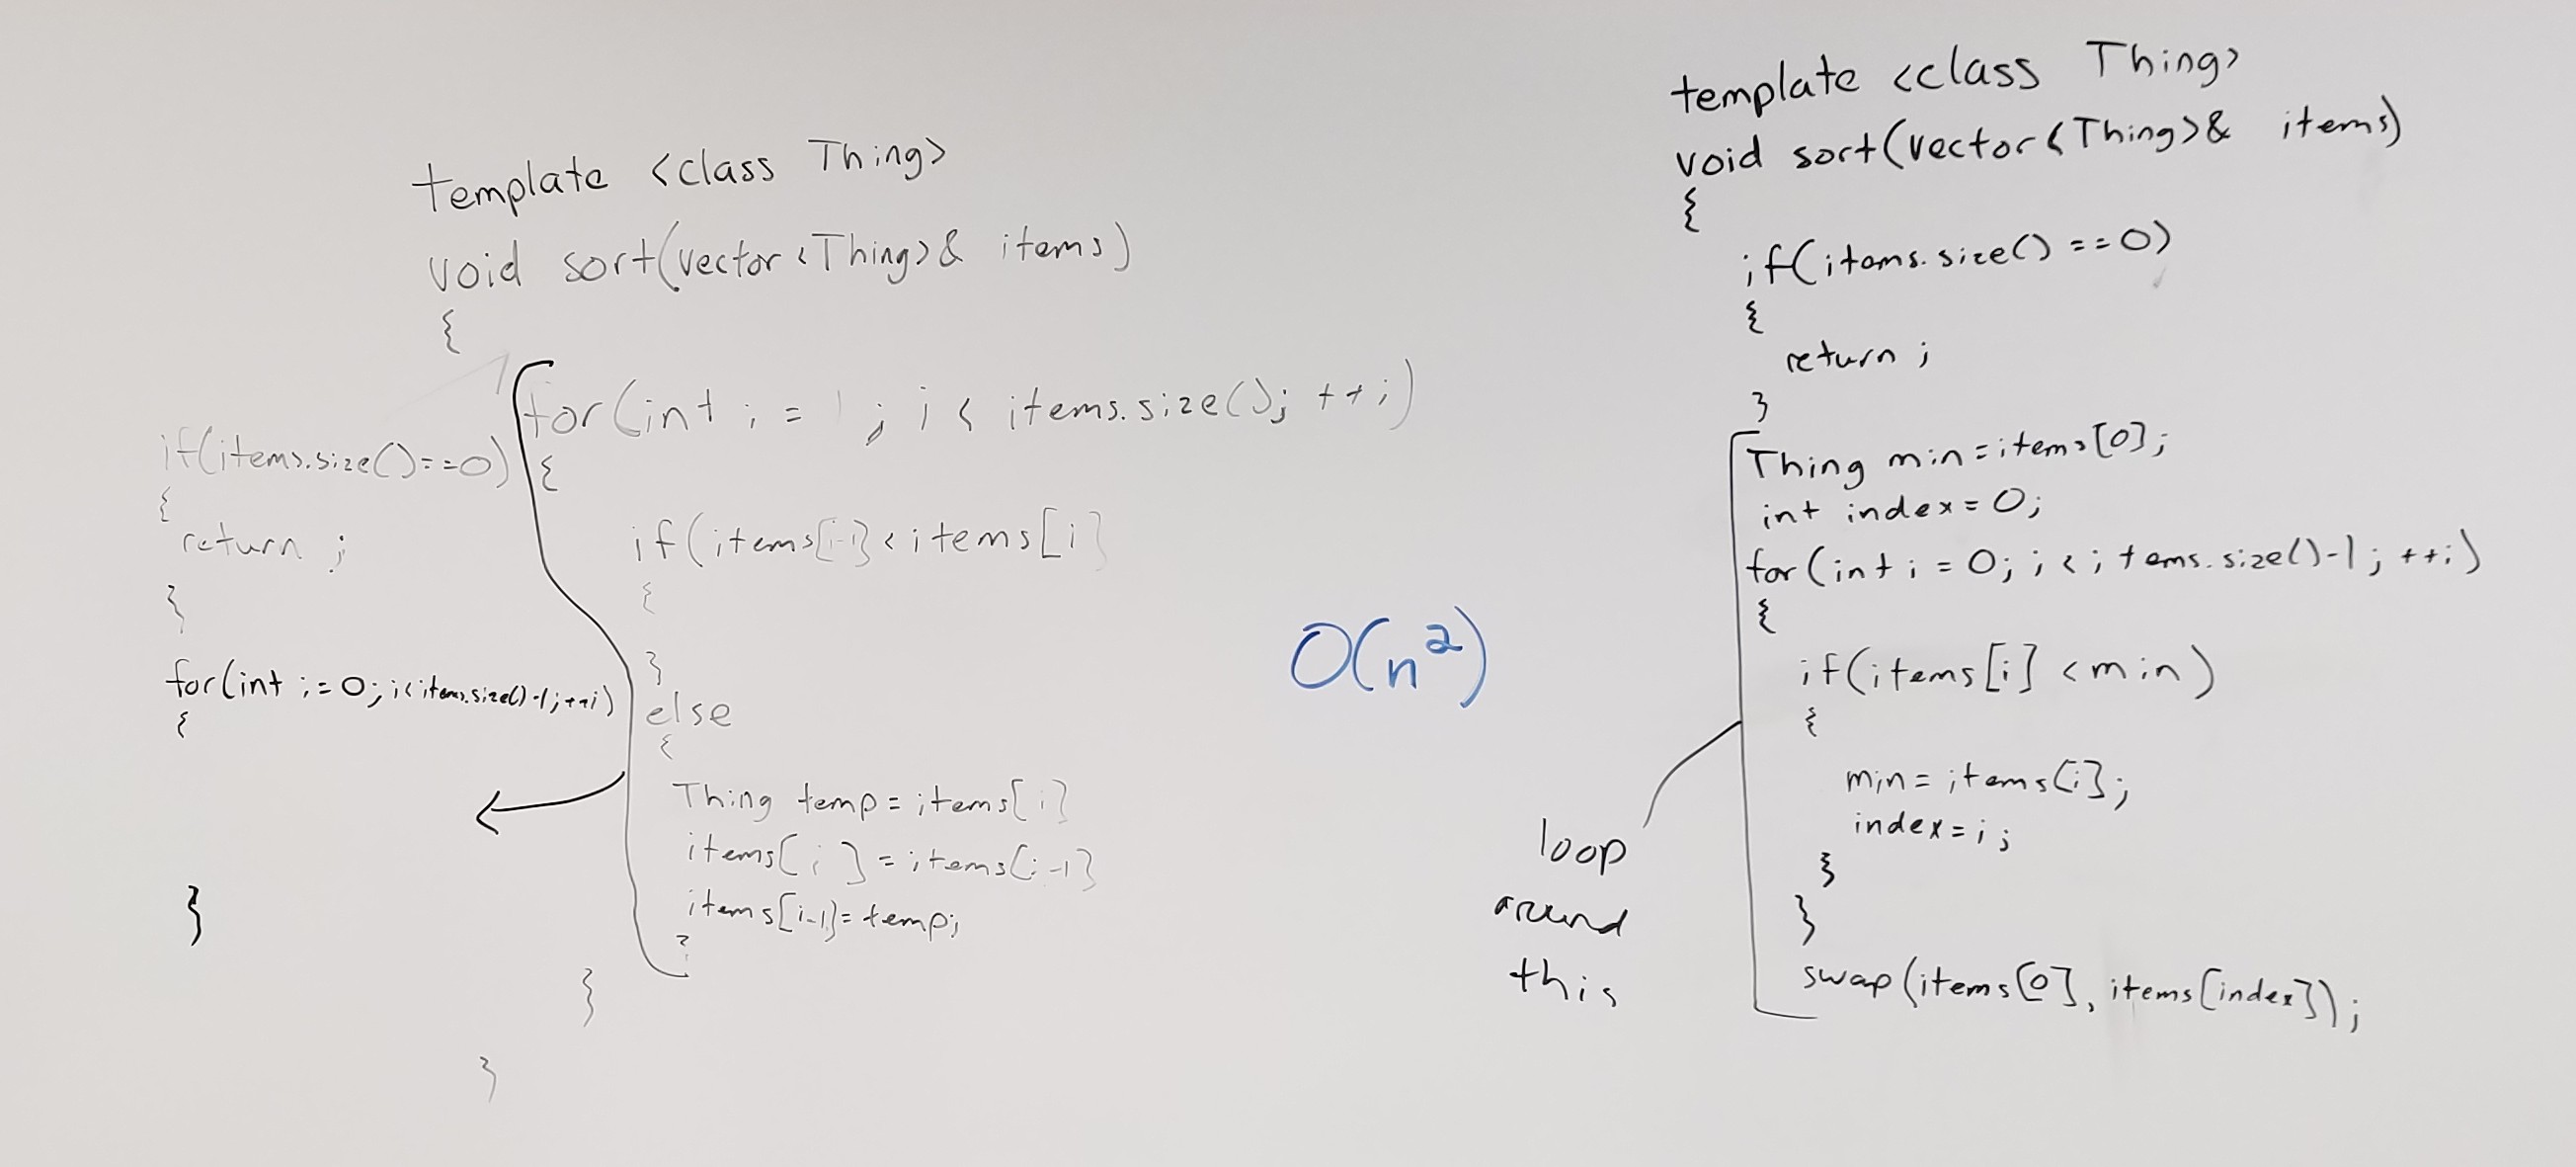 template <class Thing>
void sort(vector<Thing>& items)
{
if(items.size()==0)
{
return ;
}
for(int i=0; i<items.size()-1; ++i)
{
}
for(int i = 1 ; i < items.size(); ++i)
{
if(items[i-1] < items[i]
{
}
else
{
Thing temp = items[i]
items[i] = items[i-1]
items[i-1] = temp;
}
}
}
O(n²)
template <class Thing>
void sort(vector<Thing>& items)
{
if(items.size() ==0)
{
return ;
}
Thing min = items[0];
int index = 0;
for(int i = 0; i < items.size()-1; ++i)
{
if(items[i] < min)
{
min = items[i];
index = i ;
}
}
swap(items[0], items[index]);
loop
around
this